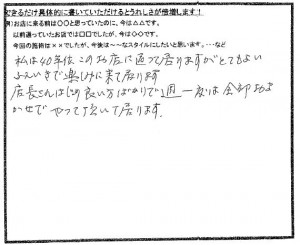 できるだけ具体的に書いていただけるとうれしさが倍増します！
例）お店に来る前は〇〇と思っていたのに、今は△△です。
以前通っていたお店では口口でしたが、今は◇◇です。
今回の施術は××でしたが、今後は～～なスタイルにしたいと思います。…など
私は40年位このお店に通って居りますがとてもよい
ふんいきで楽しみに来て居ります
店長さんはじめ良い方ばかりで週一度は全部おま
かせでやって頂いて居ります。